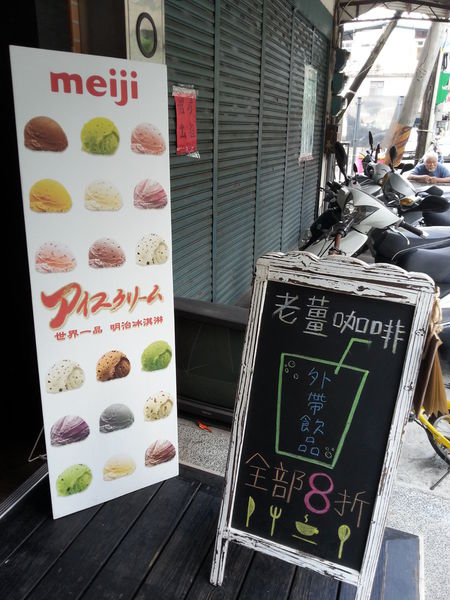 meiji
アイスクリーム
世界一品 明治冰淇淋
老薑咖啡
外帶飲品
全部8折